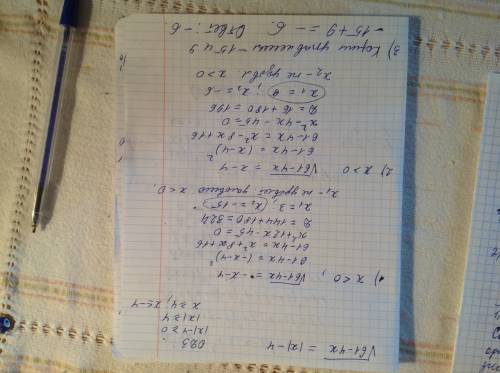 √61-4x = |x|-4
ОДЗ
|x|-4≥0
|x|≥4
x≥4, x≤-4
1) x<0,
√61-4x = -x-4
61-4x = (-x-4)²
61-4x = x²+8x+16
x²+12x-45=0
D=144+180=324
x₁=3; x₂=-15
x₁ - не удовл условию x<0.
2) x>0
√61-4x = x-4
61-4x = (x-4)²
61-4x = x²-8x+16
x²-4x-45=0
D=16+180=196
x₁=9; x₂=-6
x₂ - не удовл x>0
3) Корни уравнения -15 и 9
-15+9=-6. Ответ: -6